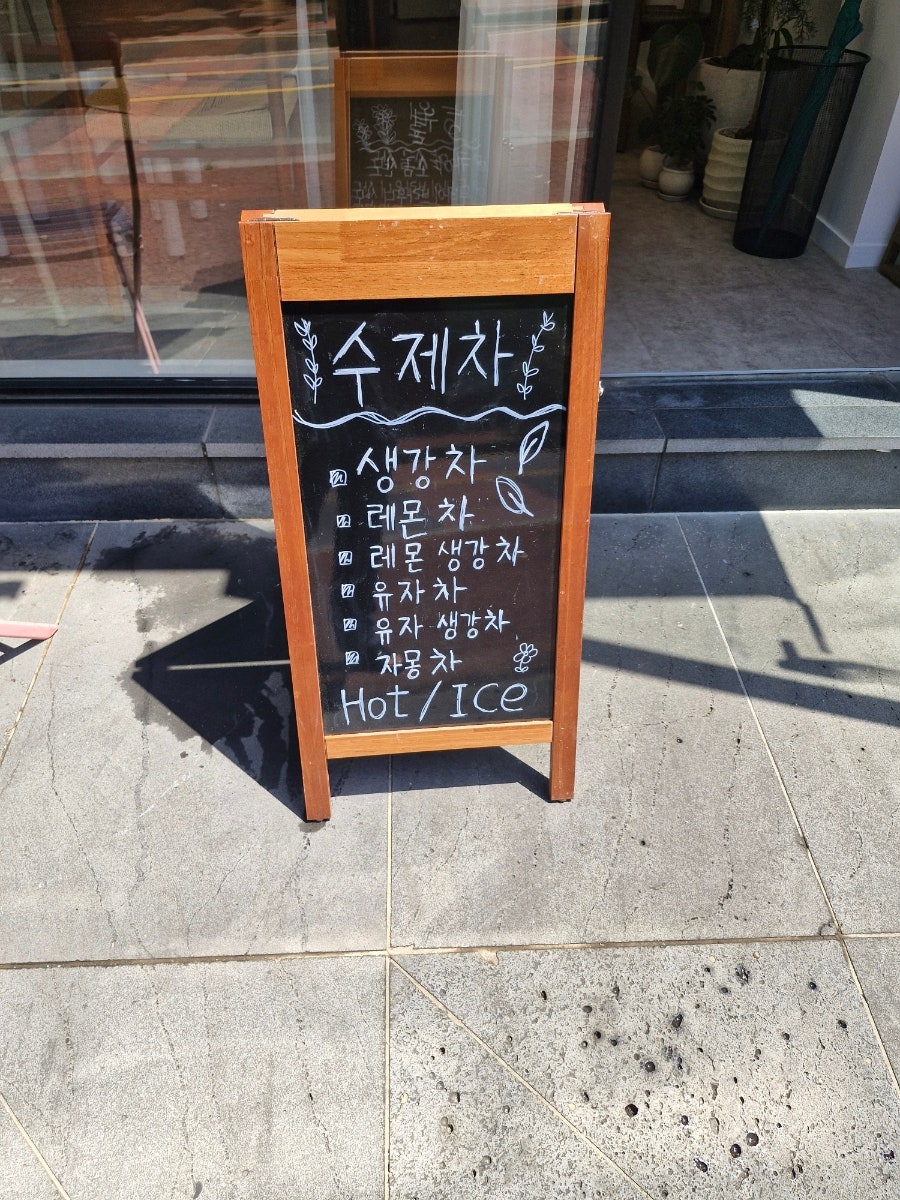 수제차
생강차
레몬차
레몬 생강차
유자차
유자 생강차
자몽차
Hot/Ice